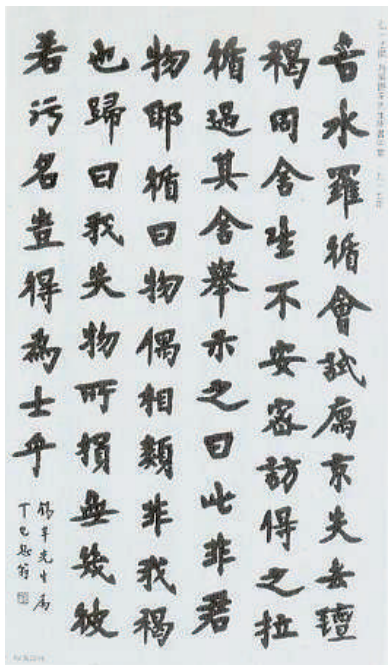 吉水羅循會試寓京失去氊
褐同舍生不安密訪得之拉
循過其舍舉示之曰此非君
物耶循曰物偶相類非我褐
也歸曰我失物所損無幾彼
若污名豈得為士乎
先生屬
丁巳